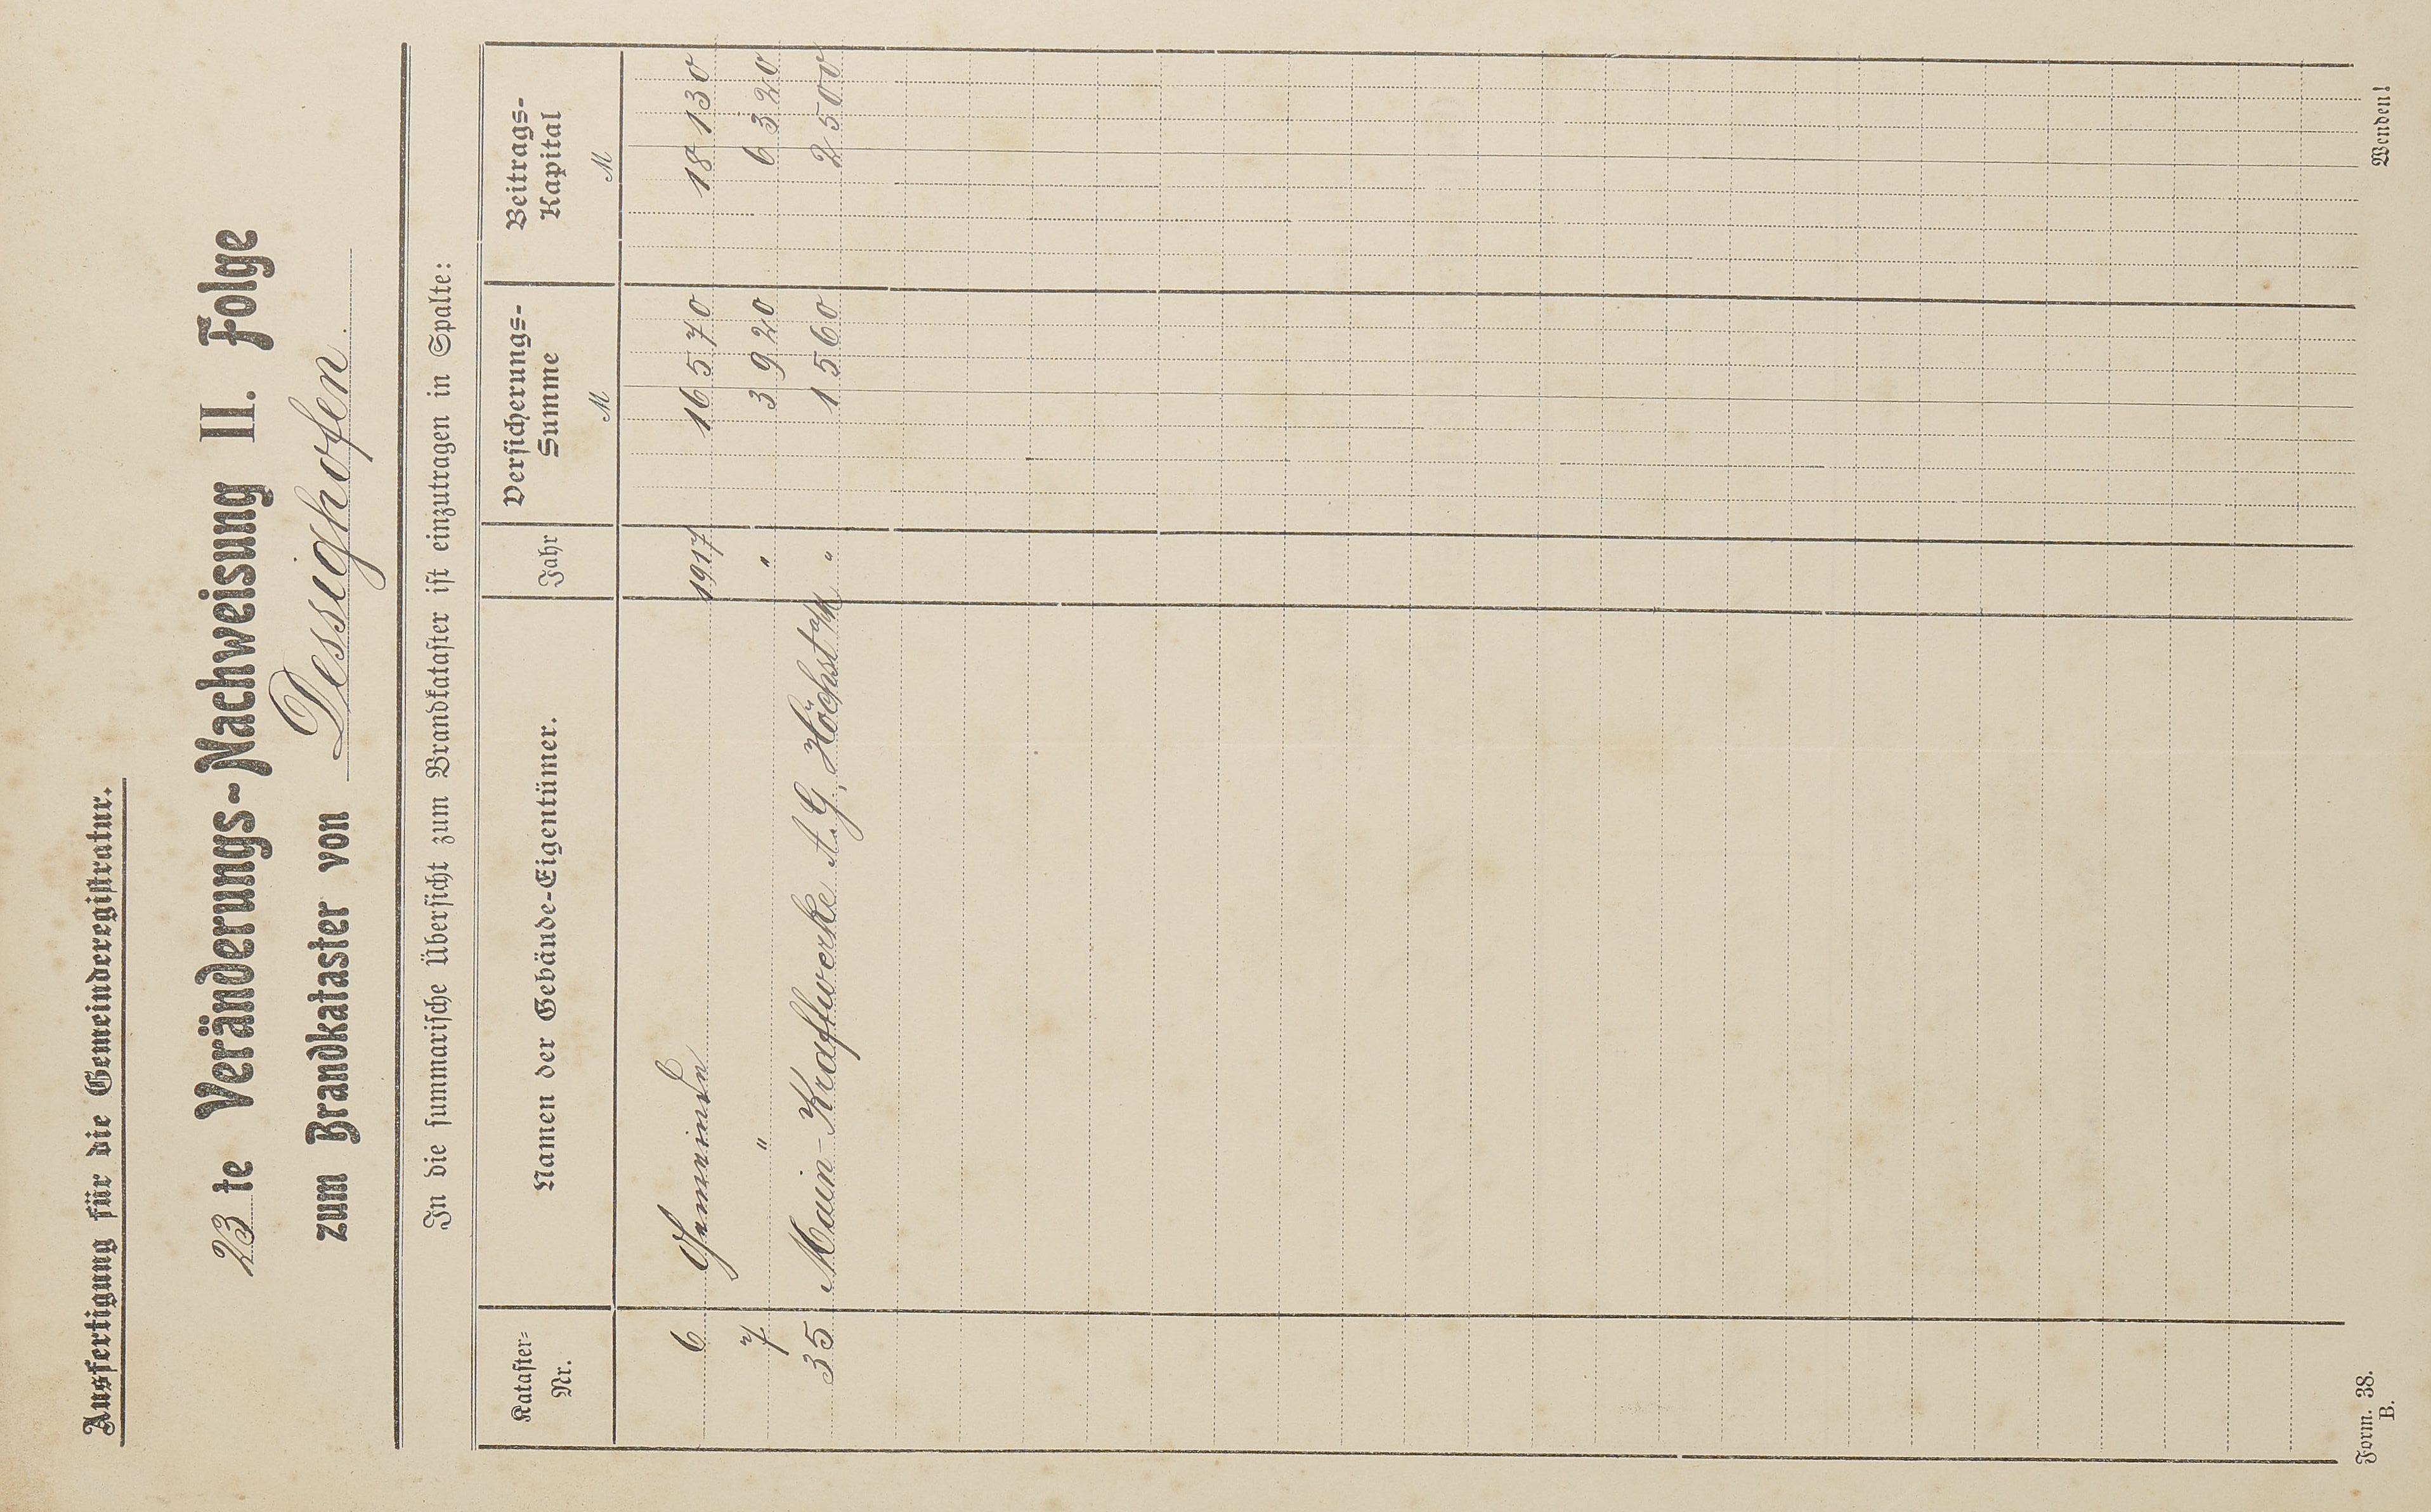 Ausfertigung für die Gemeinderegistratur.
23 te Veränderungs-Nachweisung II. Folge
zum Brandkataster von Dessighofen.
In die summarische Übersicht zum Brandkataster ist einzutragen in Spalte:
Kataster-Nr. Namen der Gebäude-Eigentümer. Jahr Versicherungs-Summe M Beitrags-Kapital M
6 Gemeinde 1917 16 570 18 130
7 " " 3 920 6 320
35 Main-Kraftwerke A.G., Höchst a/M " 1 560 2 500
Form. 38.
B.
Wenden!